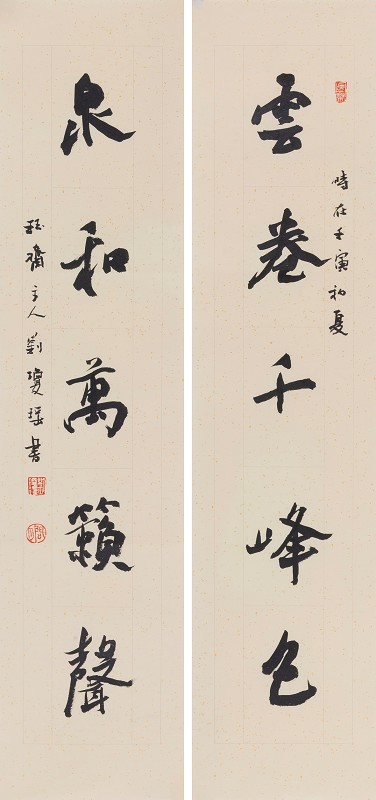 雲卷千峰色
時在壬寅初夏
泉和萬籟聲
珏齋主人劉瓊瑶書